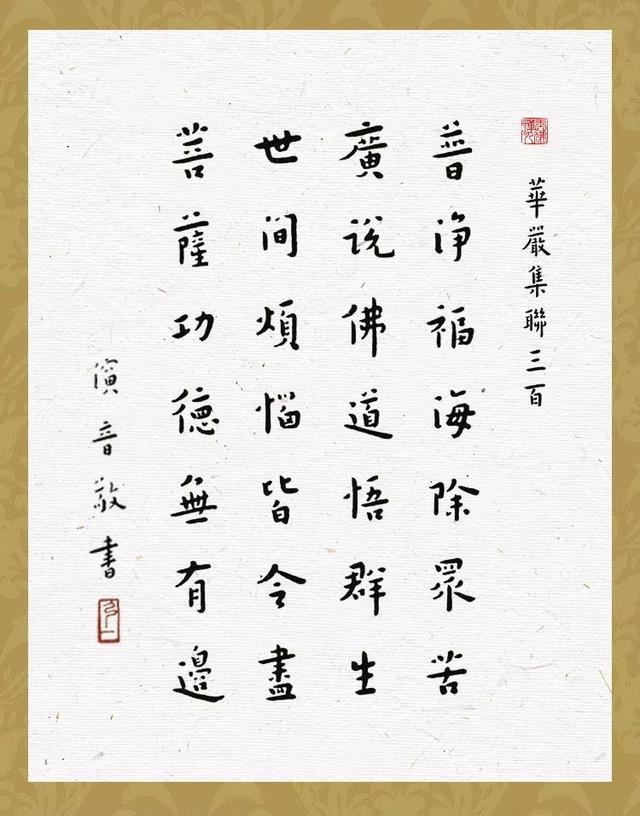 華嚴集聯三百
普淨福海除眾苦
廣說佛道悟群生
世间煩惱皆令盡
菩薩功德無有邊
演音敬書